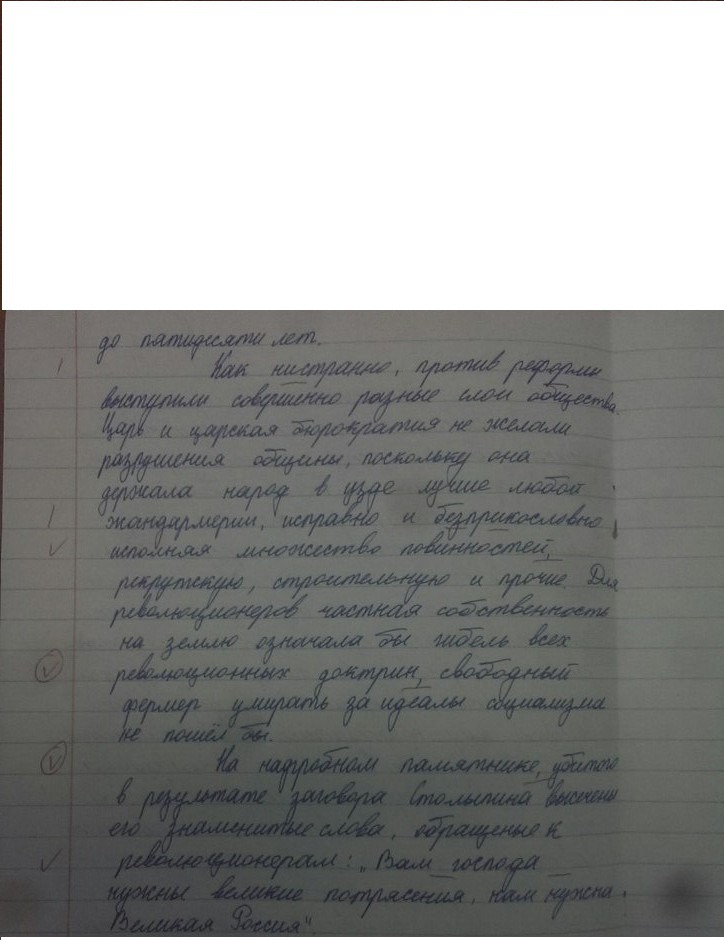 до пятидесяти лет.
Как нистранно, против реформы
выступили совершенно разные слои общества.
Царь и царская бюрократия не желали
разрушения общины, поскольку она
держала народ в узде лучше любой
жандармерии, исправно и безприкословно
исполняя множество повинностей,
рекрутскую, строительную и прочие. Для
революционеров частная собственность
на землю означала бы гибель всех
революционных доктрин, свободный
фермер умирать за идеалы социализма
не пошёл бы.
На надгробном памятнике, убитого
в результате заговора Столыпина высечены
его знаменитые слова, обращеные к
революционерам: „Вам господа
нужны великие потрясения, нам нужна
Великая Россия"